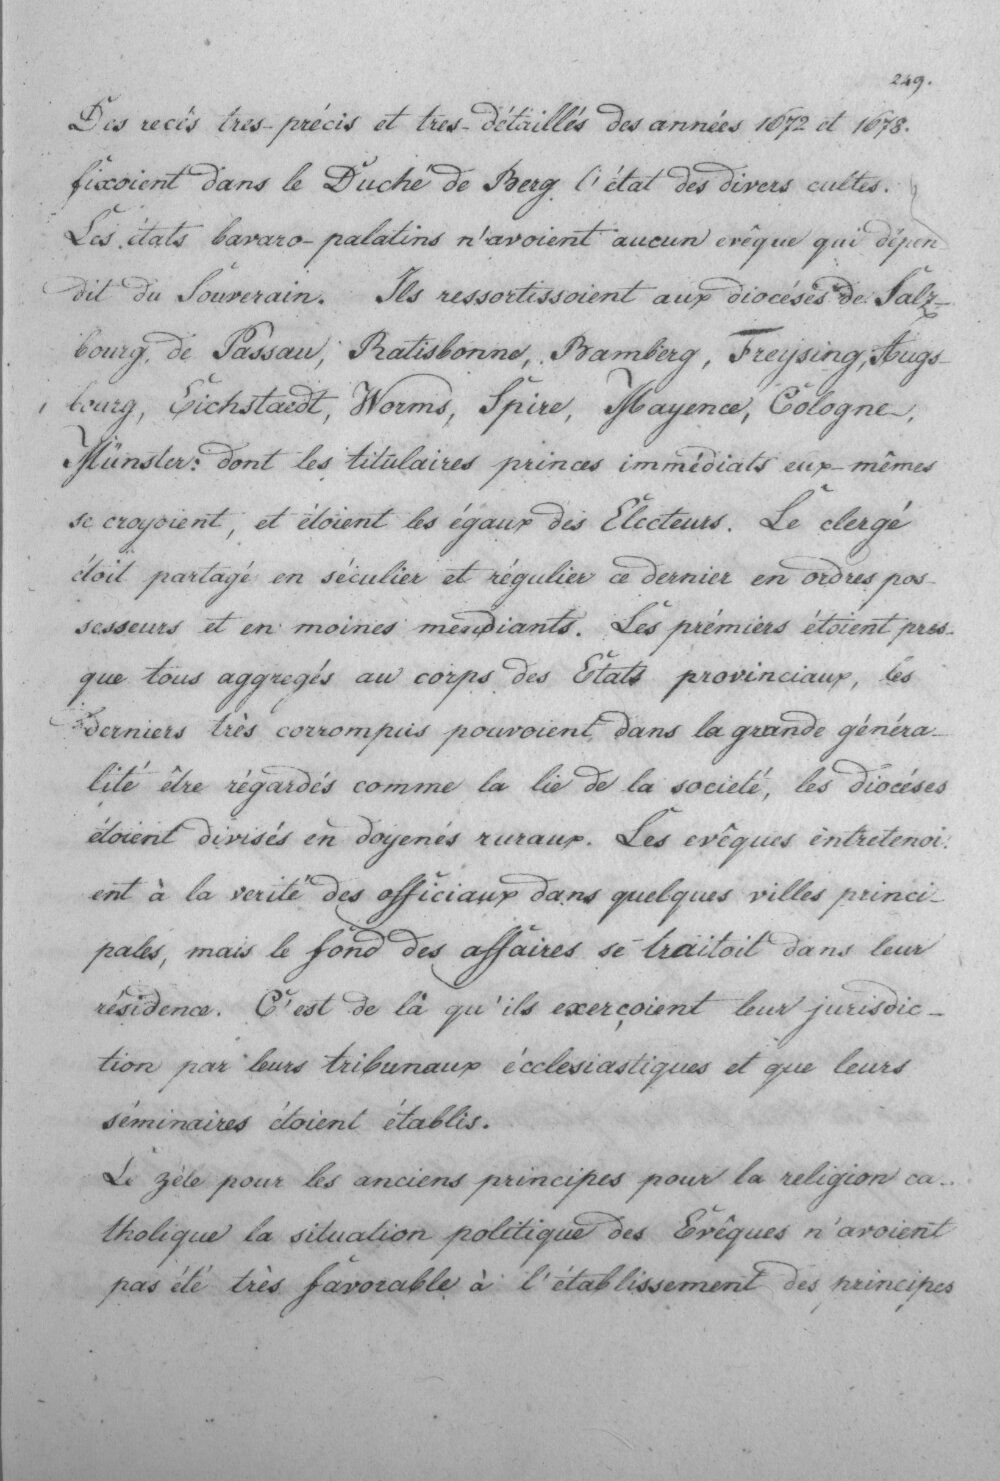 249.
Des recés tres-précis et tres-détaillés des années 1672 et 1678.
fixoient dans le Duché de Berg l'état des divers cultes.
Les états bavaro-palatins n'avoient aucun evêque qui dépen
dit du Souverain. Ils ressortissoient aux diocésès de Salz-
bourg, de Passau, Ratisbonne, Bamberg, Freysing, Augs-
bourg, Eichstaedt, Worms, Spire, Mayence, Cologne,
Münster: dont les titulaires princes immédiats eux-mêmes
se croyoient, et étoient les égaux des Electeurs. Le clergé
étoit partagé en séculier et régulier ce dernier en ordres pos-
sesseurs et en moines mendiants. Les prémiers étoient pres-
que tous aggregés au corps des Etats provinciaux, les
derniers très corrompus pouvoient dans la grande généra-
lité être régardés comme la lie de la societé, les diocéses
étoient divisés en doyenés ruraux. Les evêques entretenoi-
ent à la verité des officiaux dans quelques villes princi-
pales, mais le fond des affaires se traitoit dans leur
résidence. C'est de là qu'ils exerçoient leur jurisdic-
tion par leurs tribunaux écclesiastiques et que leurs
séminaires étoient établis.
Le zèle pour les anciens principes pour la religion ca-
tholique la situation politique des Evêques n'avoient
pas été très favorable à l'établissement des principes